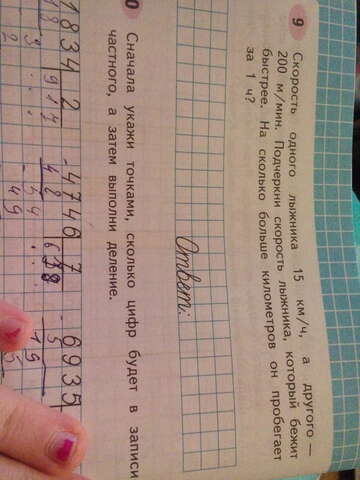 9 Скорость одного лыжника 15 км/ч, а другого —
200 м/мин. Подчеркни скорость лыжника, который бежит
быстрее. На сколько больше километров он пробегает
за 1 ч?
Ответ:
0 Сначала укажи точками, сколько цифр будет в записи
частного, а затем выполни деление.
1834 2 4746 7 6935